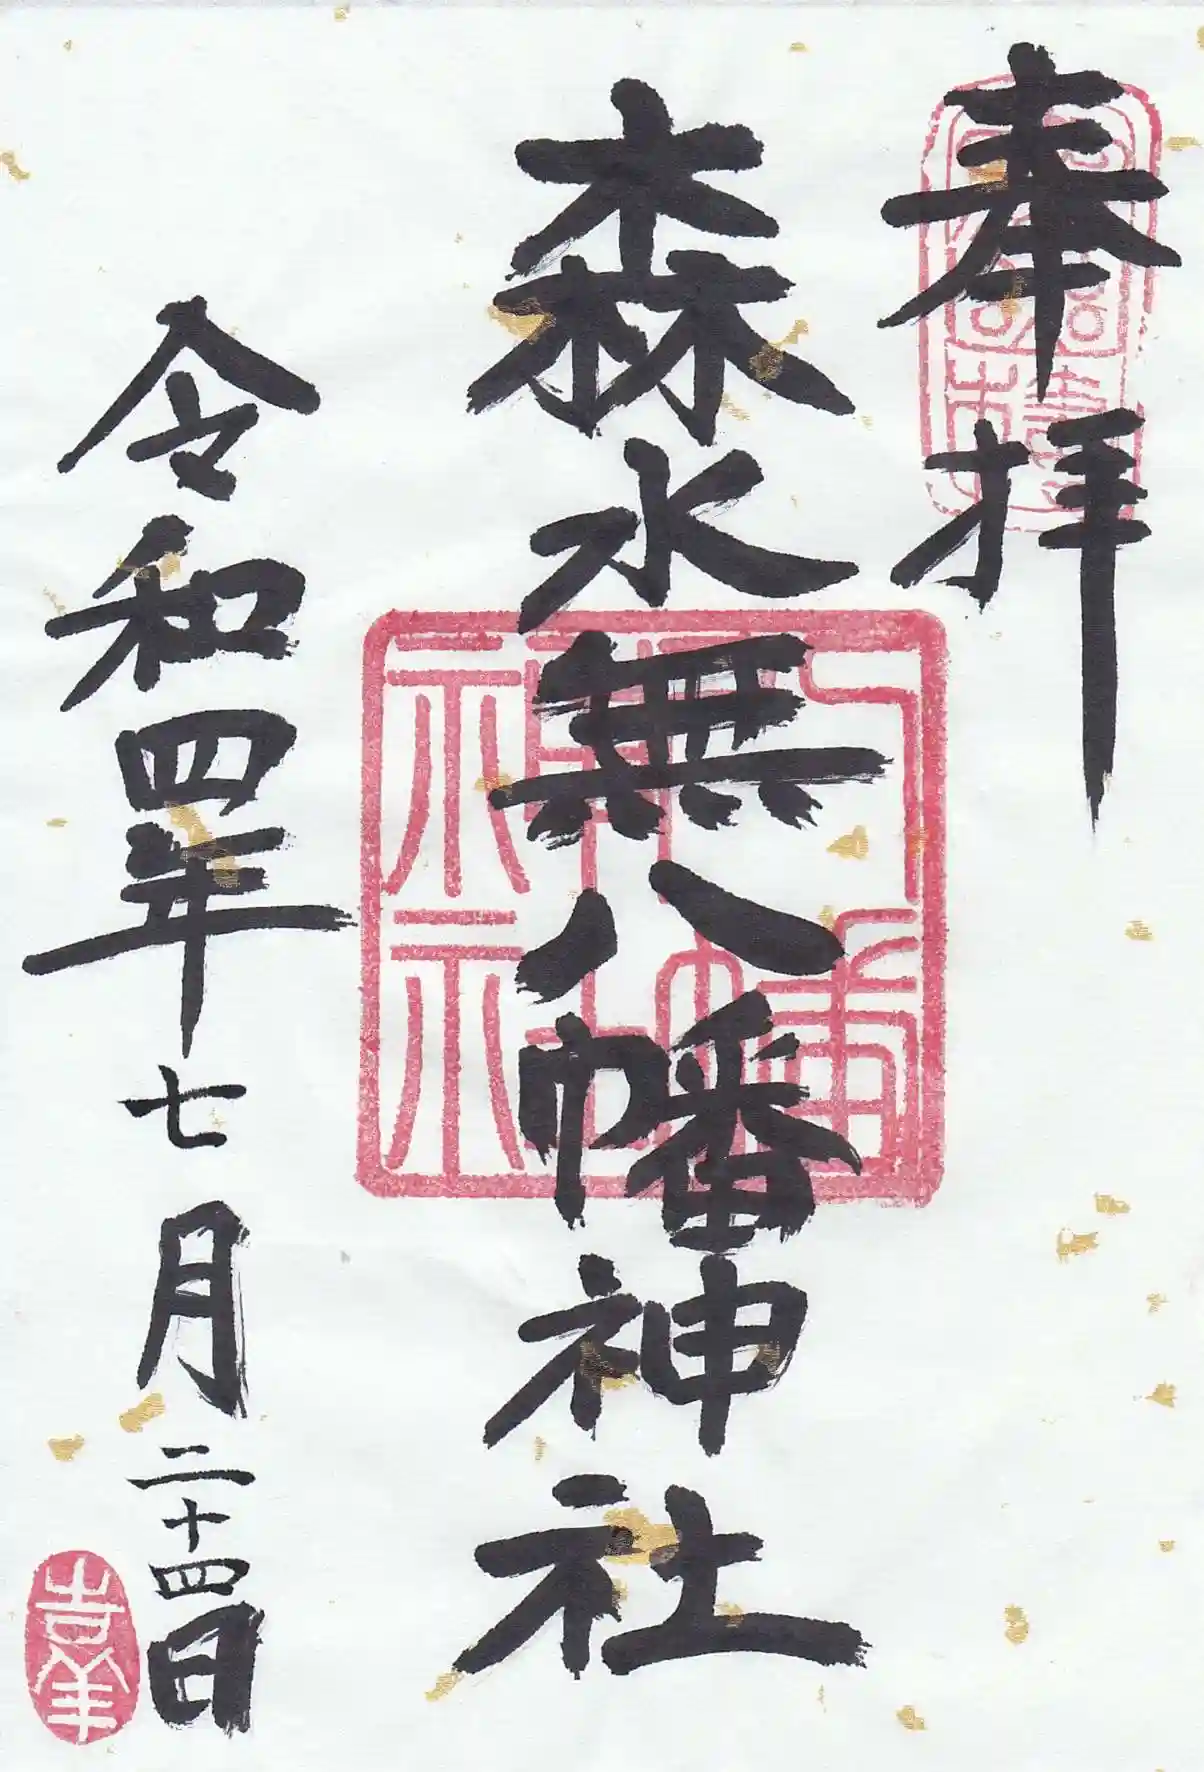 奉拝
森水無八幡神社
八幡神社
令和四年七月二十四日